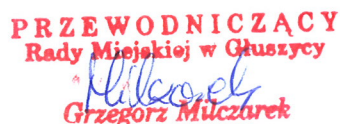 PRZEWODNICZĄCY
Rady Miejskiej w Głuszycy
Milczarek
Grzegorz Milczarek